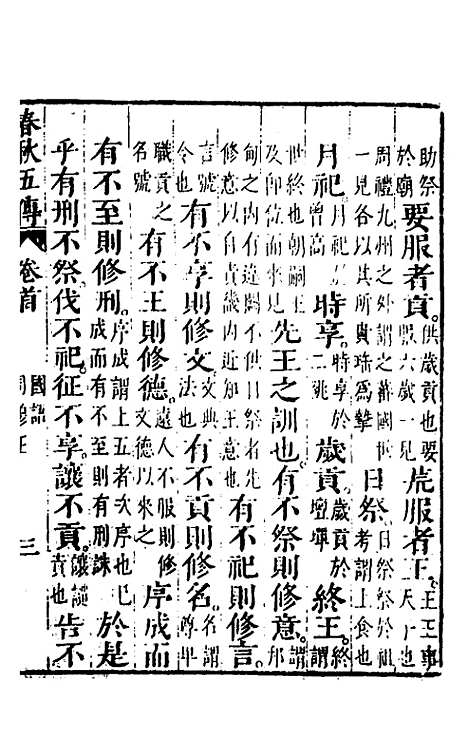 助祭於廟要服者貢。供歲貢也要服六歲一見荒服者王。王王事天子也
周禮九州之外謂之蕃國世一見各以其所貴珤爲摯日祭日祭祭於祖考謂上食也
月祀。月祀於曾高時享。時享於二祧歲貢。歲貢於壇墠終王。終謂
世終也朝嗣王及卽位而來見先王之訓也。有不祭則修意。邦
甸之內有違闕不供日祭者先修意以自責畿內近知王意也有不祀則修言。
言號令也有不享則修文文典法也有不貢則修名。名謂尊卑
職貢之名號有不王則修德。遠人不服則修文德以來之序成而
有不至則修刑。序成謂上五者次序也已成而有不至則有刑誅於是
乎有刑不祭伐不祀征不享讓不貢。讓譴責也告不
春秋五傳 卷首 國語 周穆王 三